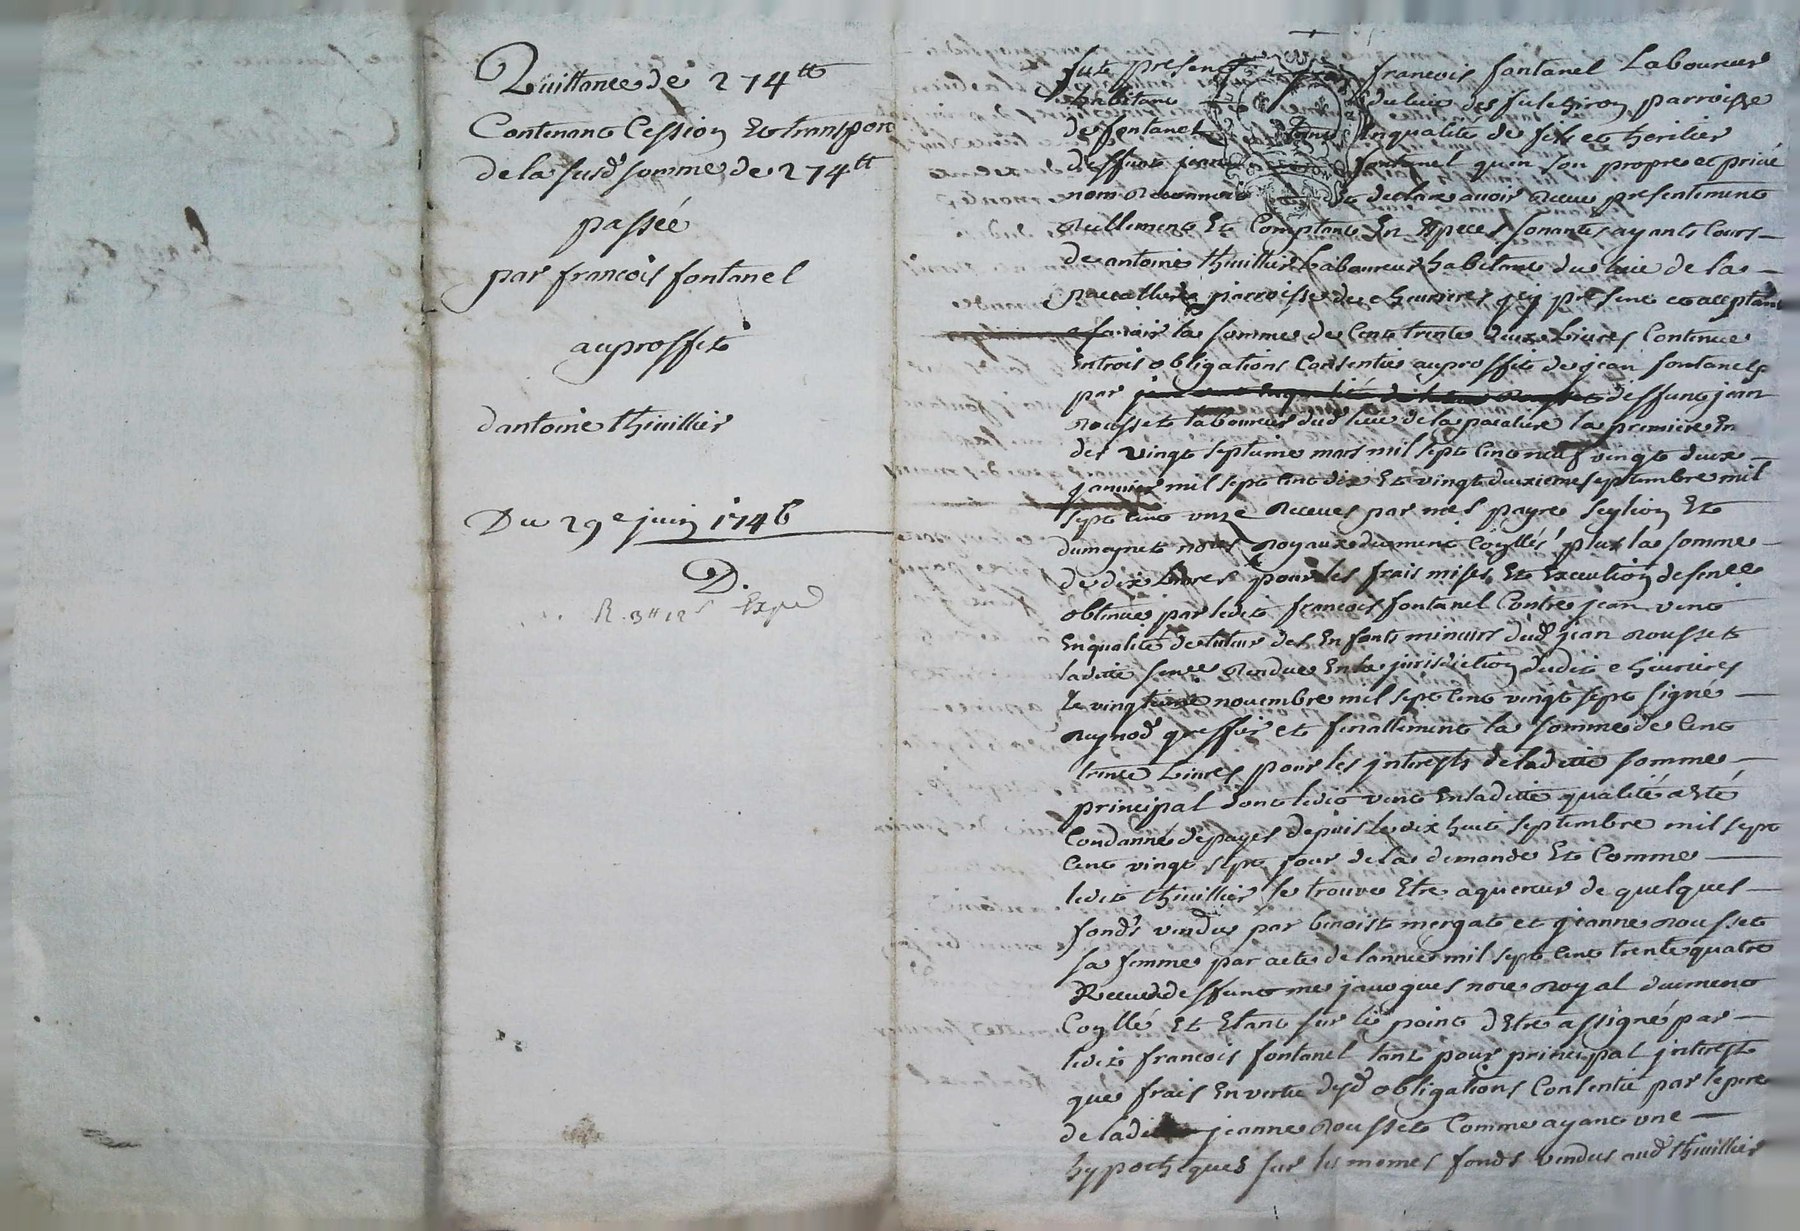 Quittance de 274 tt
Contenant Cession Et transport
de la susd somme de 274 tt
passée
par francois fontanel
au proffit
dantoine thuillier
Du 29e juin 1746
D.
R. 3 tt 12 s Exped
fut present francois fontanel Laboureur
habitant du lieu des parroisse
de fontanet Enqualité de fils et heritier
deffunt jean fontanel qui en son propre et privé
nom Reconnoit Et declare avoir Receu presentement
Reellement Et Comptant En Especes sonantes ayants Cours
de antoine thuillier Laboureur habitant du lieu de la
parroisse de cy present et acceptant
scavoir la somme de Cent trente deux Livres Contenue
Entrois obligations Consenties au proffit de jean fontanel
par deffunt jean
Rousset laboureur dud lieu de la la premiere En
datte du vingt septieme mars mil sept Cent neuf vingt deux
janvier mil sept Cent dix Et vingt deuxieme septembre mil
sept Cent unze Receues par mes payre Et
dumaynet nores Royaux duement Coyllés plus la somme
de dix Livres pour les frais mises Et Execution de sence
obtenue par ledit francois fontanel Contre jean vent
Enqualité de tuteur des Enfants mineurs dud jean Rousset
laditte sence Rendue En la jurisdiction dudit
Le vingtieme novembre mil sept Cent vingt sept signé
Raynod greffier et finallement la somme de Cent
trente Livres pour les jnterests de laditte somme
principal dont ledit vent Enladitte qualité a Eté
Condanné de payer depuis le dix huit septembre mil sept
Cent vingt sept jour de la demande Et Comme
ledit thuillier se trouve Etre aquereur de quelques
fonds vendus par benoist mergat et jeanne Rousset
sa femme par acte de lannée mil sept Cent trente quatre
Receu deffunt me jacques nore Royal duement
Coyllé Et Etant sur le point dEtre assigné par
ledit francois fontanel tant pour principal jnterest
que frais En vertu desd obligations Consentie par le pere
de laditte jeanne Rousset Comme ayant une
hypotheques sur les memes fonds vendus aud thuillier